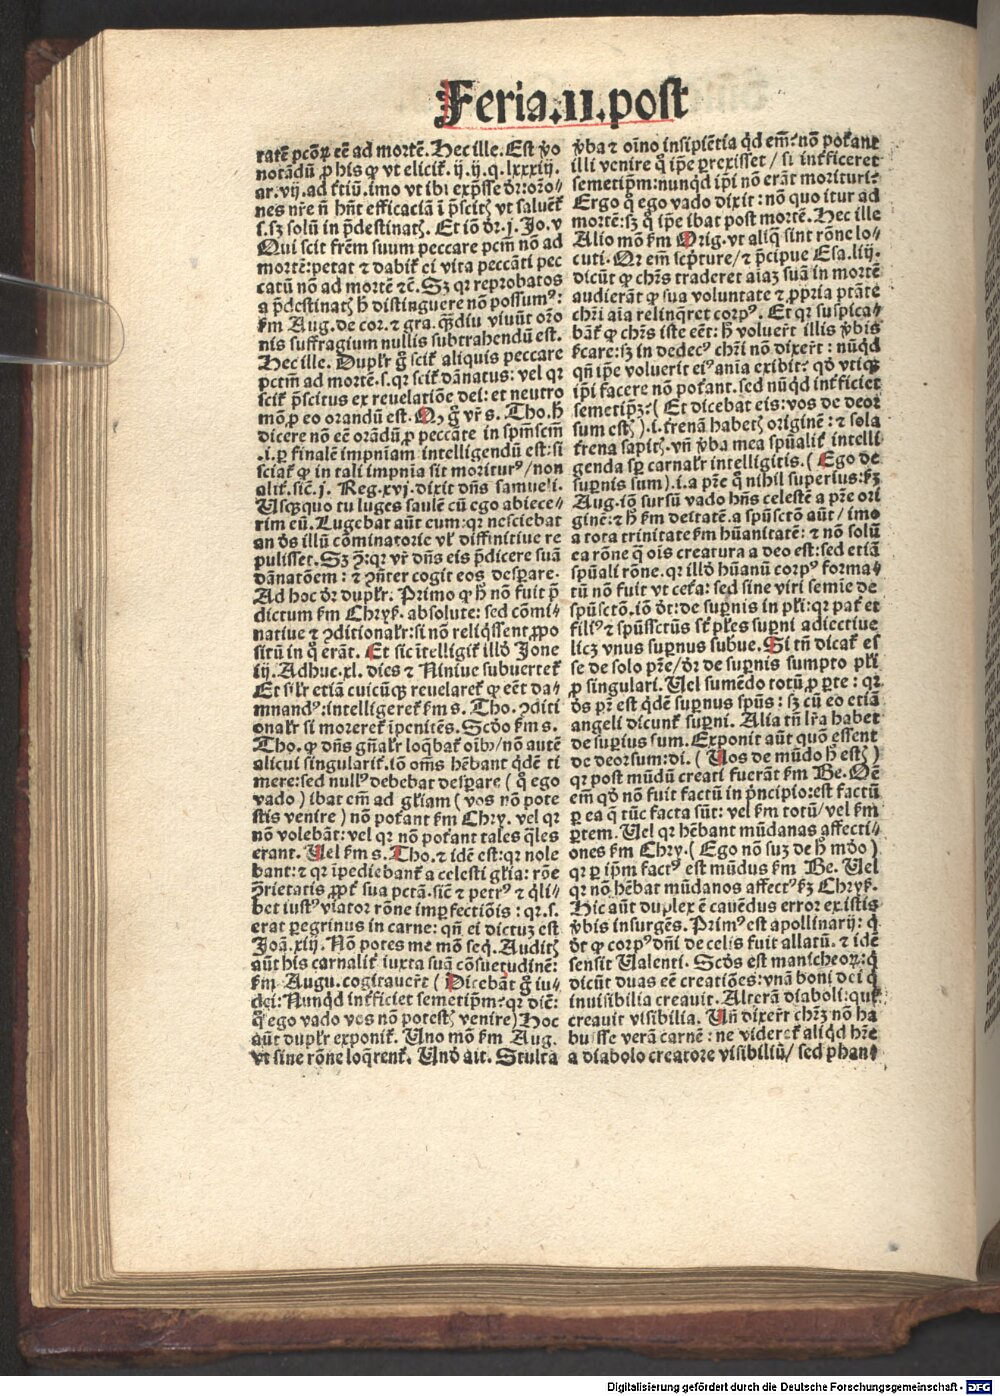 Feria.II.post
ratē pctōꝝ eē ad mortē. Hec ille. Est ꝟo
notādū ꝓ his ꝙ vt elicit᷑. ij. ij. q. lxxxiij.
ar. vij. ad f̄tiū. imo vt ibi exp̄sse dr̄: or̄o⸗
nes nr̄e nō hn̄t efficaciā ī p̄scitꝭ vt saluēt᷑
s. sꝫ solū in p̄destinatꝭ. Et iō dr̄. j. Jo. v
Qui scit frēm suum peccare pctm̄ nō ad
mortē: petat ⁊ dabit᷑ ei vita peccāti pec
catū nō ad mortē ⁊c̄. Sꝫ qꝛ reprobatos
a p̄destinatꝭ h̄ distinguere nō possumꝰ:
km̄ Aug. de cor. ⁊ gra. qᷓdiu viuūt or̄o
nis suffragium nullis subtrahendū est.
Hec ille. Duplr̄ g̊ scit᷑ aliquis peccare
pctm̄ ad mortē. s. qꝛ scit᷑ dānatus: vel qꝛ
scit᷑ p̄scitus ex reuelatiōe dei: et neutro
mō ꝓ eo orandū est. Qꝫ g̊ vr̄ s. Tho. h̄
dicere nō eē orādū ꝓ peccāte in spm̄scm̄
.i. ꝑ finalē impnīam intelligendū est: si
sciat᷑ ꝙ in tali impnīa sit moriturꝰ/ non
alit᷑. sic̄. j. Reg. xvj. dixit dn̄s samueli.
Usqꝫquo tu luges saulē cū ego abiece⸗
rim eū. Lugebat aūt eum: qꝛ nesciebat
an dꝰs illū cōminatorie vl̓ diffinitiue re
pulisset. Sꝫ ꝯ̄: qꝛ vr̄ dn̄s eis p̄dicere suā
dānatōem: ⁊ ꝯn̄ter cogit eos desꝑare.
Ad hoc dr̄ duplr̄. Primo ꝙ h̄ nō fuit p̄
dictum km̄ Chryſ. absolute: sed cōmi⸗
natiue ⁊ ꝯditionalr̄: si nō reliq̄ssent ꝓpo
sitū in q̊ erāt. Et sic ītelligit᷑ illđ Jone
iij. Adhuc. xl. dies ⁊ Niniue subuertet᷑
Et silr̄ etiā cuicūqꝫ reuelaret᷑ ꝙ eēt da⸗
mnandꝰ: intelligeret᷑ km̄ s. Tho. ꝯditi
onalr̄ si moreret᷑ īpenitēs. Scđo km̄ s.
Tho. ꝙ dn̄s gn̄alr̄ loq̄bat᷑ oībꝰ/ nō autē
alicui singularit᷑. iō om̄s hēbant qđē ti
mere: sed nullꝰ debebat desꝑare ( q̊ ego
vado ) ibat em̄ ad gl̓iam ( vos nō pote
stis venire ) nō pot̓ant km̄ Chry. vel qꝛ
nō volebāt: vel qꝛ nō pot̓ant tales q̄les
erant. Uel km̄ s. Tho. ⁊ idē est: qꝛ nole
bant: ⁊ qꝛ īpediebant᷑ a celesti gl̓ia: rōe
ꝯ̄rietatis ꝓpt̓ sua pctā. sic̄ ⁊ petrꝰ ⁊ q̄li⸗
bet iustꝰ viator rōne imꝑfectiōis: qꝛ. s.
erat ꝑegrinus in carne: qn̄ ei dictuꝫ est
Joā. xiij. Nō potes me mō seq̄. Auditꝭ
aūt his carnalit᷑ iuxta suā cōsuetudinē:
km̄ Augu. cogitauer̄t ( Dicebāt g̊ iu⸗
dei: Nunqđ int̓ficiet semetip̄m? qꝛ dic̄:
q̊ ego vado vos nō potestꝭ venire) Hoc
aūt duplr̄ exponit᷑. Uno mō km̄ Aug.
vt sine rōne loq̄rent᷑. Unđ ait. Stulta
ꝟba ⁊ oīno insipiētia qđ em̄? nō pot̓ant
illi venire q̊ ip̄e ꝑrexisset / si int̓ficeret
semetip̄m: nunqđ ip̄i nō erāt morituri?
Ergo q̊ ego vado dixit: nō quo itur ad
mortē: sꝫ q̊ ip̄e ibat post mortē. Hec ille
Alio mō km̄ Orig. vt aliq̊ sint rōne lo⸗
cuti. Or̄ em̄ scp̄ture/ ⁊ p̄cipue Esa. liij.
dicūt ꝙ chr̄s traderet aīaꝫ suā in mortē
audierāt ꝙ sua voluntate ⁊ ꝓpria ptāte
chr̄i aīa relinq̄ret corpꝰ. Et qꝛ suspica⸗
bāt᷑ ꝙ chr̄s iste eēt: h̄ voluer̄t illis ꝟbis
k̄care: sꝫ in dedecꝰ chr̄i nō dixer̄t: nūqđ
qn̄ ip̄e voluerit eiꝰ anīa exibit? qđ vtiqꝫ
ip̄i facere nō pot̓ant. sed nūqđ int̓ficiet
semetip̄ꝫ? ( Et dicebat eis: vos de deor
sum estꝭ ). i. t̓renā habetꝭ originē: ⁊ sola
t̓rena sapitꝭ. vn̄ ꝟba mea spūalit᷑ intelli
genda sꝑ carnalr̄ intelligitis. ( Ego de
suꝑnis sum ). i. a pr̄e q̊ nihil superius: kꝫ
Aug. iō sursū vado hn̄s celestē a pr̄e ori
ginē: ⁊ h̄ km̄ deitatē. a spūsctō aūt / imo
a tota trinitate km̄ hūanitatē: ⁊ nō solū
ea rōne q̊ ois creatura a deo est: sed etiā
spūali rōne. qꝛ illđ hūanū corpꝰ forma⸗
tū nō fuit vt cet̓a: sed sine viri semīe de
spūsctō. iō dt̄: de suꝑnis in pl̓i: qꝛ pat᷑ et
filiꝰ ⁊ spūssctūs st̄ pl̓es suꝑni adiectiue
licꝫ vnus suꝑnus subūe. Si tn̄ dicat᷑ es
se de solo pr̄e/ dr̄ de suꝑnis sumpto pl̓i
ꝓ singulari. Uel sumēdo totū ꝓ ꝑte: qꝛ
dꝰs pr̄ est qđē suꝑnus spūs: sꝫ cū eo etiā
angeli dicunt᷑ suꝑni. Alia tn̄ lr̄a habet
de suꝑius sum. Exponit aūt quō essent
de deorsum: di. ( Uos de mūdo h̄ estꝭ )
qꝛ post mūdū creati fuerāt km̄ Be. Oē
em̄ qđ nō fuit factū in p̄ncipio: est factū
ꝑ ea q̄ tūc facta sūt: vel km̄ totū/ vel km̄
ꝑtem. Uel qꝛ hēbant mūdanas affecti⸗
ones km̄ Chry. ( Ego nō suꝫ de h̄ mđo )
qꝛ ꝑ ip̄m factꝰ est mūdus km̄ Be. Uel
qꝛ nō hēbat mūdanos affectꝰ kꝫ Chryſ.
Hic aūt duplex ē cauēdus error ex istis
ꝟbis insurgēs. Primꝰ est apollinarij: q̊
dt̄ ꝙ corpꝰ dn̄i de celis fuit allatū. ⁊ idē
sensit Ualenti. Scđs est manicheoꝝ: q̊
dicūt duas eē creatiōes: vnā boni dei q̊
inuisibilia creauit. Alterā diaboli: qui
creauit visibilia. Un̄ dixer̄t chr̄ꝫ nō ha
buisse verā carnē: ne videret᷑ aliqđ hr̄e
a diabolo creatore visibiliū/ sed phan⸗
Digitalisierung gefördert durch die Deutsche Forschungsgemeinschaft - DFG